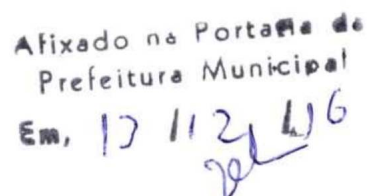 Afixado na Portaria da
Prefeitura Municipal
Em, 13 / 12 / 16